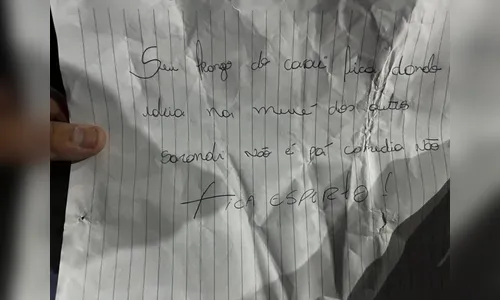 Seu frango do carai fica dando
ideia na muié dos outro
sarandi não é pá comedia não
FICA ESPERTO!